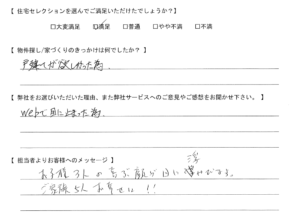 【 住宅セレクションを選んでご満足いただけたでしょうか？】
□大変満足 ☑満足 □普通 □やや不満 □不満
【 物件探し/家づくりのきっかけは何でしたか？ 】
戸建てが欲しかった為。
【 弊社をお選びいただいた理由、また弊社サービスへのご意見やご感想をお聞かせ下さい。 】
Webで目に止まった為。
【 担当者よりお客様へのメッセージ 】
お子様3人の喜ぶ顔が目に浮かびます。
ご家族5人お幸せに!!